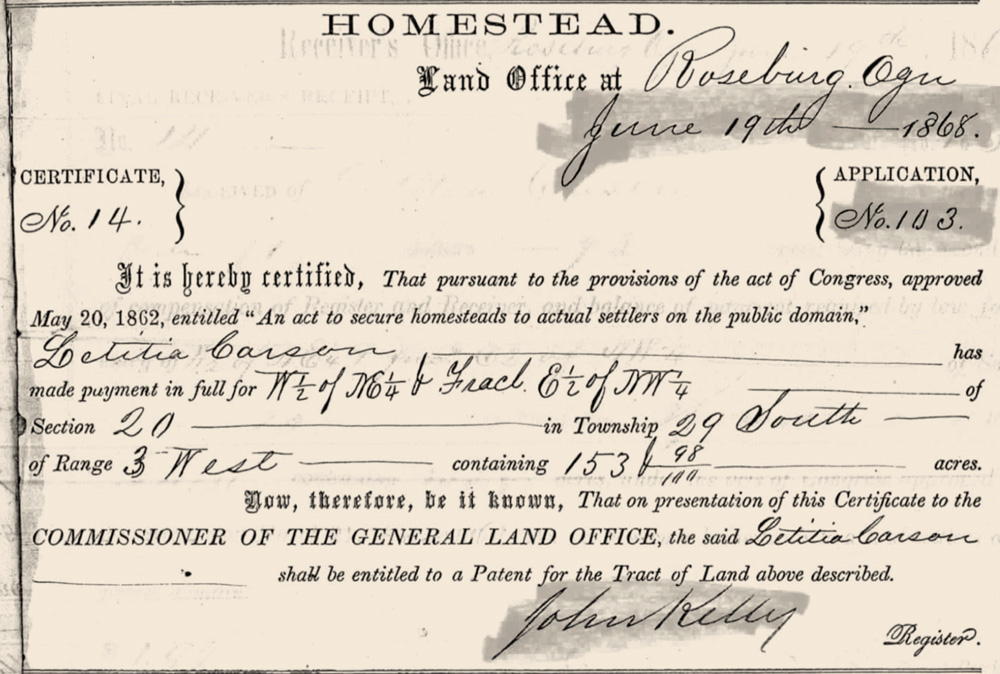 HOMESTEAD.
Land Office at Roseburg. Ogn
June 19th — 1868.
CERTIFICATE, } { APPLICATION,
No. 14. No. 103.
It is hereby certified, That pursuant to the provisions of the act of Congress, approved
May 20, 1862, entitled "An act to secure homesteads to actual settlers on the public domain,"
Letitia Carson has
made payment in full for W½ of NE¼ & Fracl. E½ of NW¼ of
Section 20 in Township 29 South
of Range 3 West containing 153 & 98/100 acres.
Now, therefore, be it known, That on presentation of this Certificate to the
COMMISSIONER OF THE GENERAL LAND OFFICE, the said Letitia Carson
shall be entitled to a Patent for the Tract of Land above described.
John Kelly
Register.